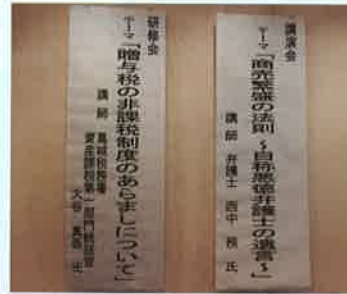 講演会
テーマ「商売繁盛の法則 ～自称悪徳弁護士の遺言～」
講師 弁護士 西中 務 氏
研修会
テーマ「贈与税の非課税制度のあらましについて」
講師 葛城税務署
資産課税第一部門統括官
大谷 氏